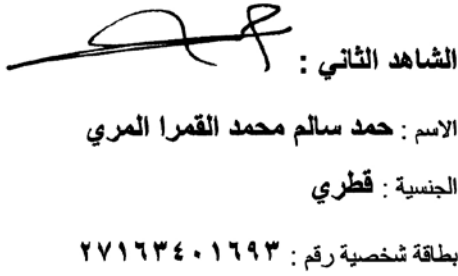 الشاهد الثاني :
الاسم : حمد سالم محمد القمرا المري
الجنسية : قطري
بطاقة شخصية رقم : ٢٧١٦٣٤٠١٦٩٣